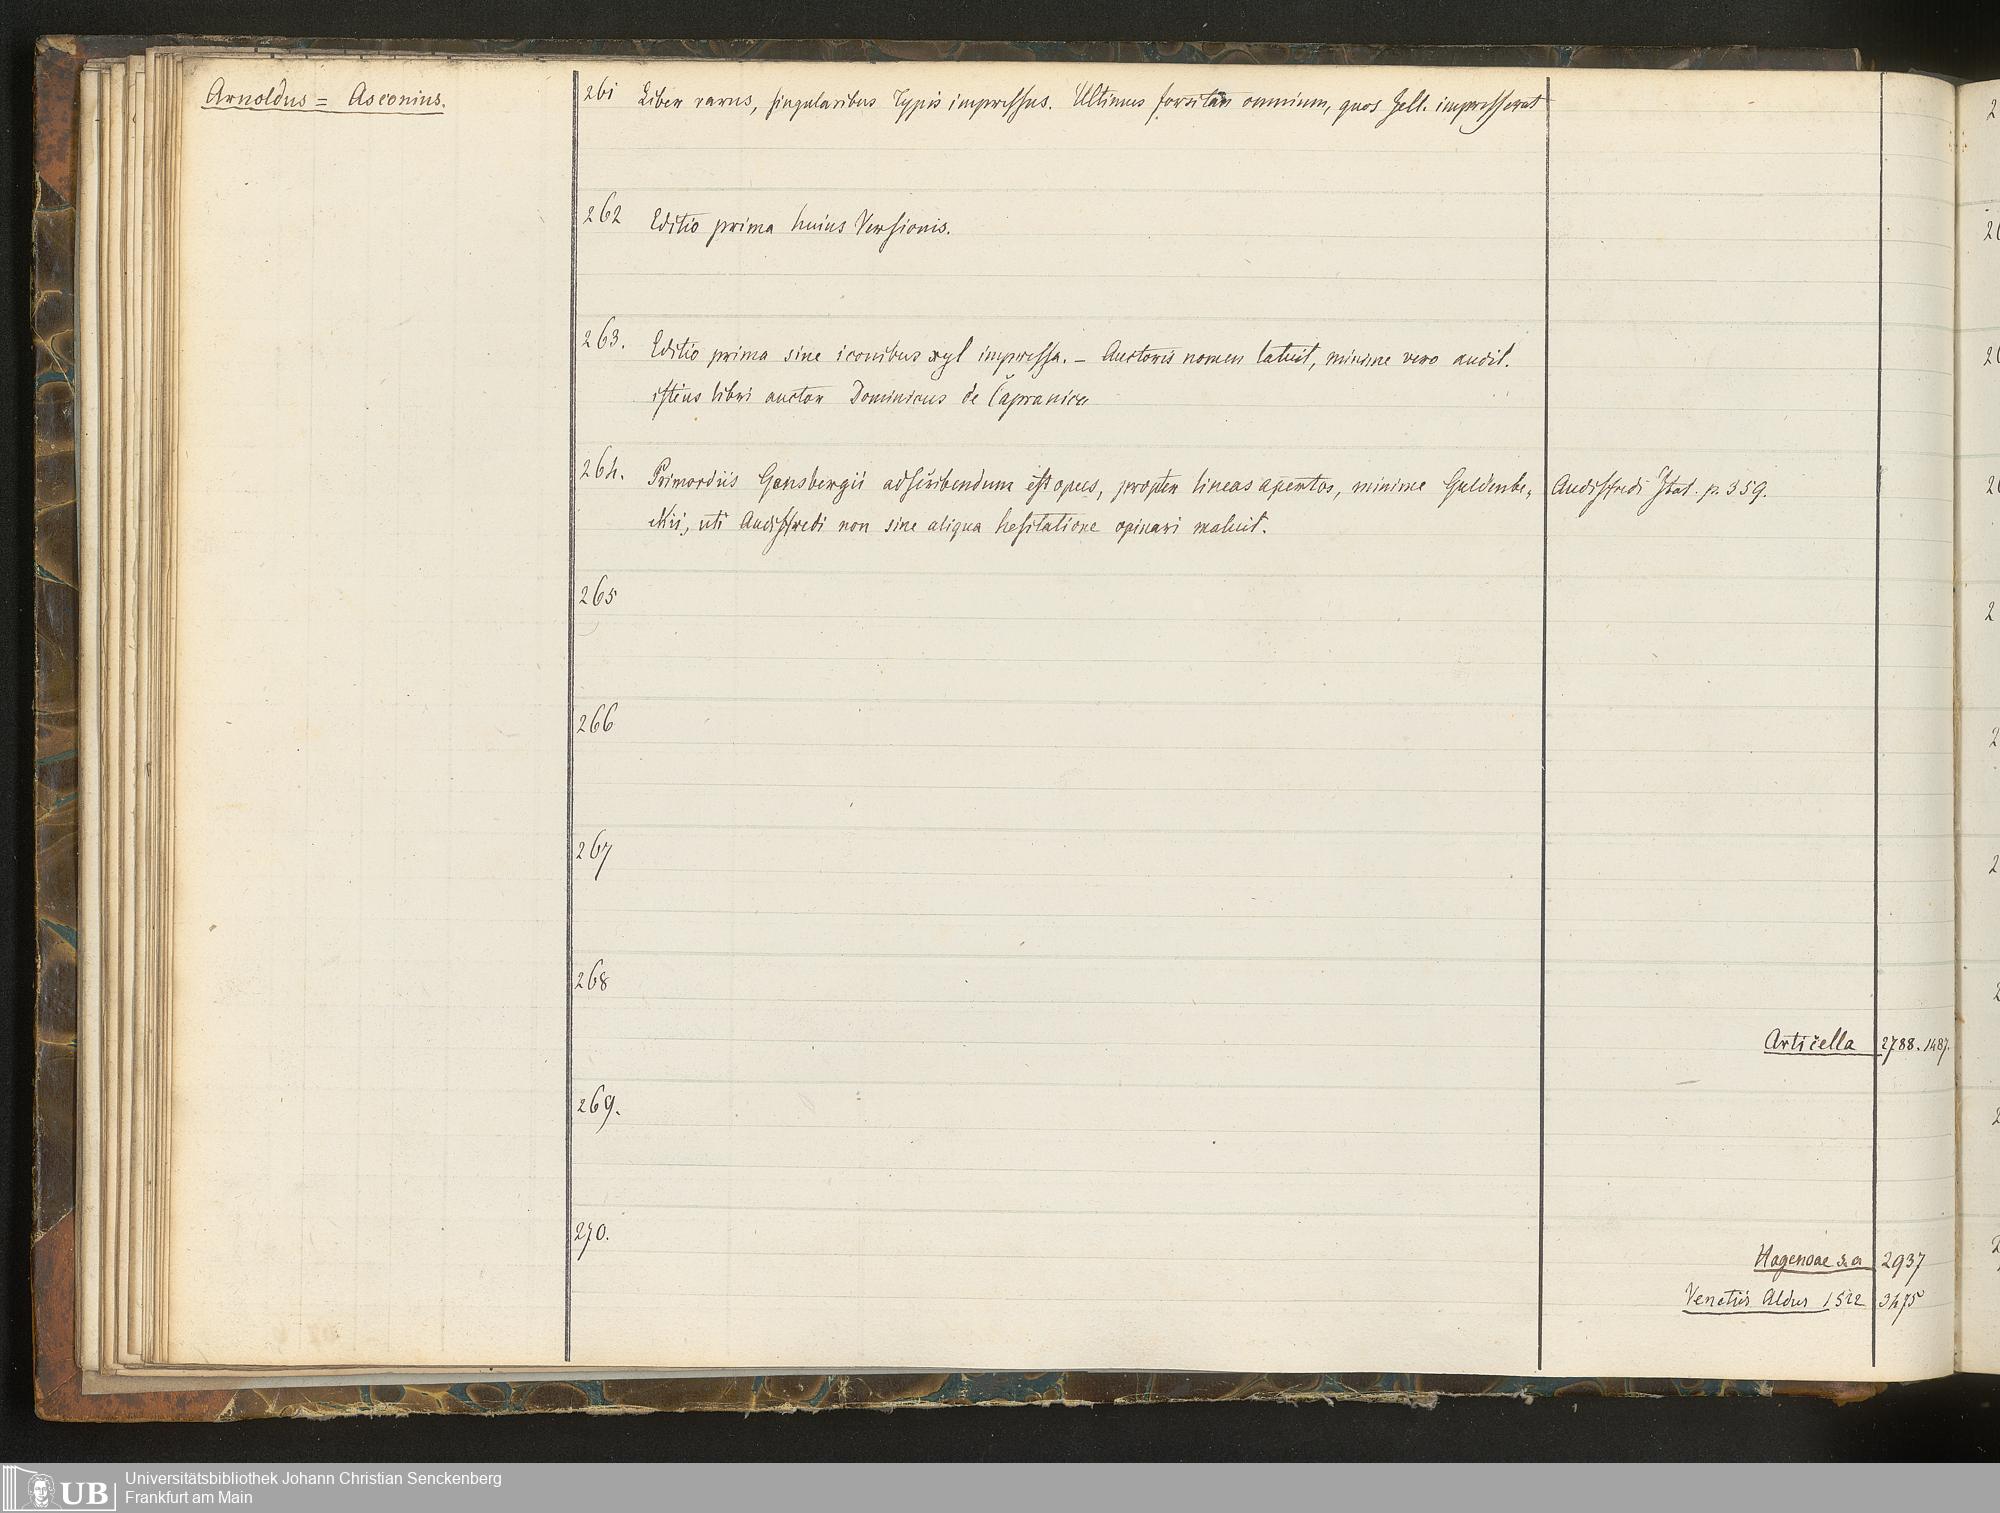 Arnoldus = Asconius.
261 Liber rarus, singularibus Typis impressus. Ultimus forsitan omnium, quos Zell. impresserat
262 Editio prima huius Versionis.
263. Editio prima sine iconibus xyl impressa. – Auctoris nomen latuit, minime vero audit.
istius libri auctor Dominicus de Capranica
264. Primordiis Gensbergii adscribendum est opus, propter lineas apertas, minime Guldenbe,
ckii, uti Audiffredi non sine aliqua hesitatione opinari maluit.
Audiffredi Ital. p. 359.
265
266
267
268
Articella 2788. 1487.
269.
270.
Hagenoae s. a 2937
Venetiis Aldus 1522 3475
Universitätsbibliothek Johann Christian Senckenberg
Frankfurt am Main
UB